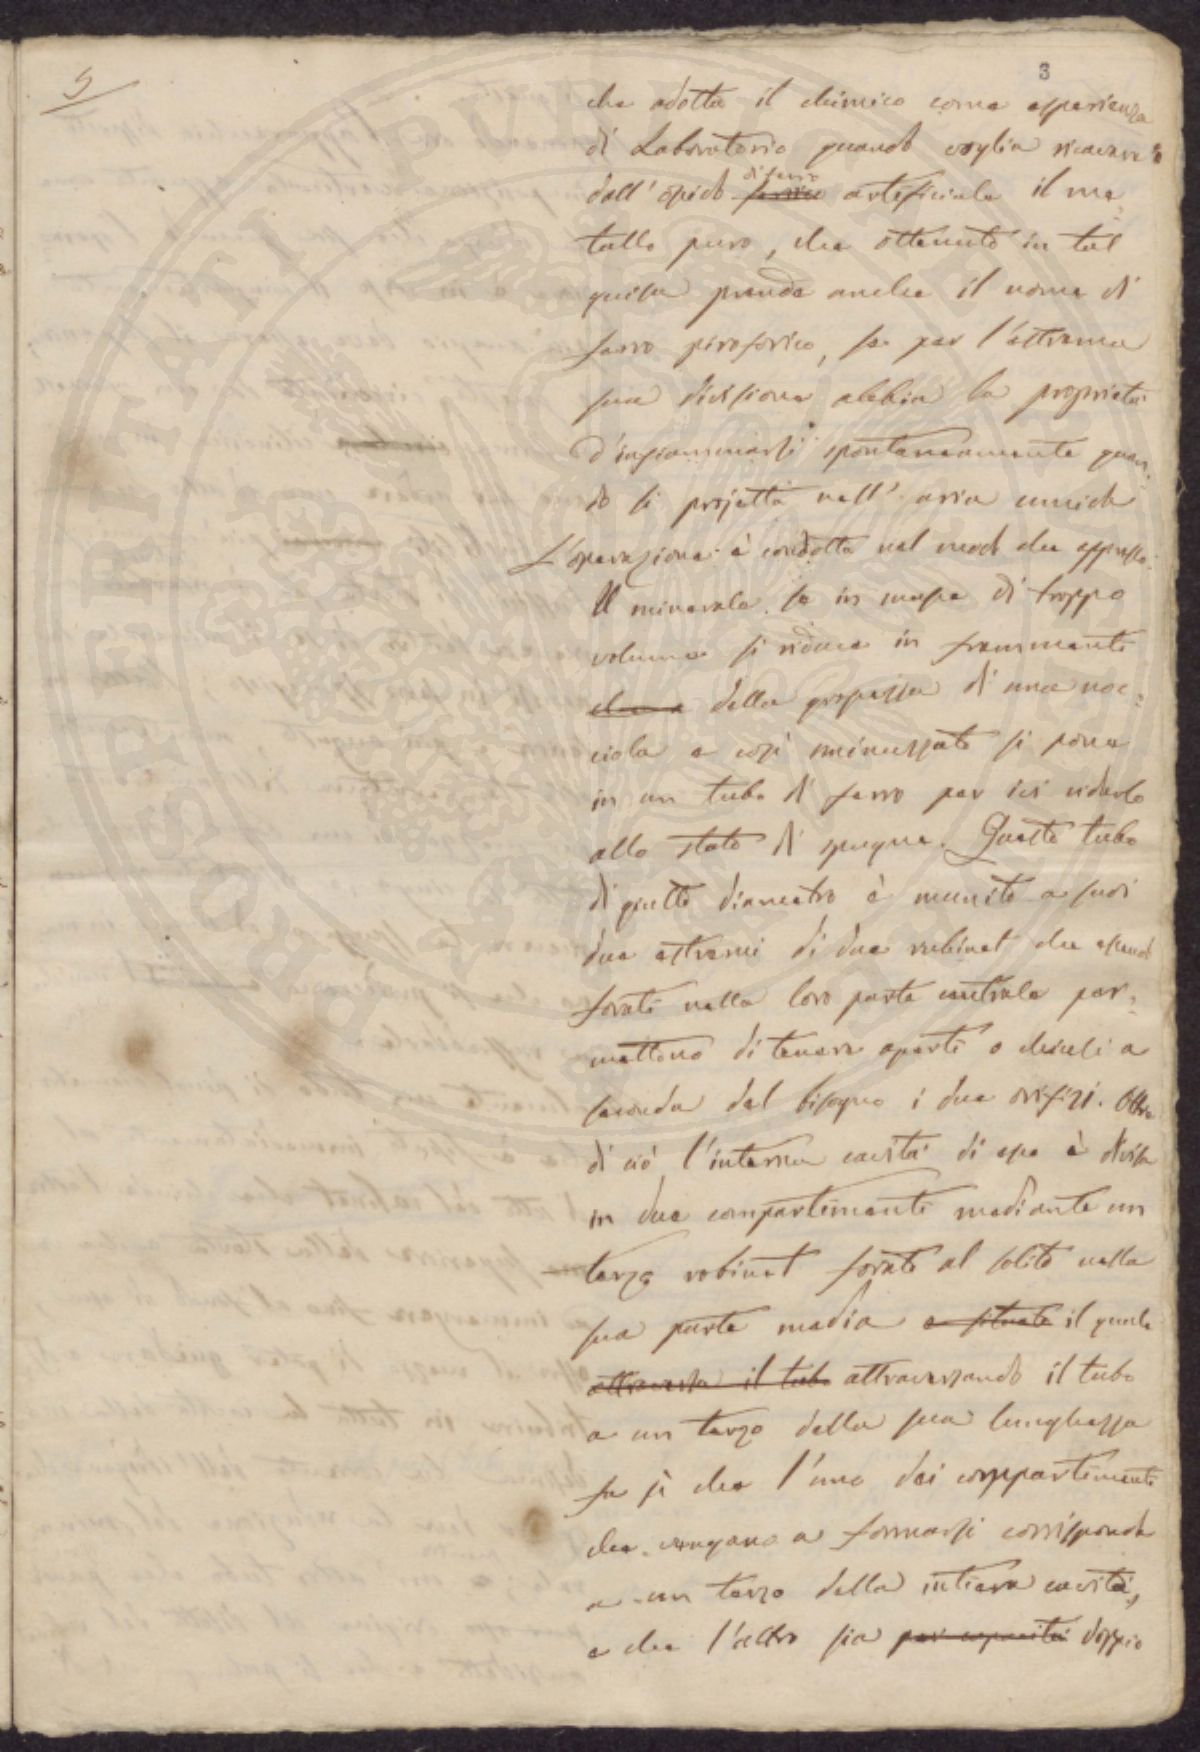 5
3
che adotta il chimico come esperienza
di Laboratorio quando voglia ricavare
di ferro
dall'ossido ferrico arteficiale il me-
tallo puro, che ottenuto in tal
guisa prende anche il nome di
ferro piroforico, se per l'estrema
sua divisione abbia la proprietà
d'infiammarsi spontaneamente quan-
do si projetta nell'aria umida
L'operazione è condotta nel modo che appresso.
Il minerale se in masse di troppo
volume si riduce in frammenti
della grossezza di una noc-
ciola e così minuzzato si pone
in un tubo di ferro per ivi ridurlo
allo stato di spugna. Questo tubo
di giusto diametro è munito a suoi
due estremi di due rubinet che essendo
forati nella loro parte centrale per-
mettono di tenere aperti o chiusi a
seconda del bisogno i due orifizi. Oltre
di ciò l'interna cavità di esso è divisa
in due compartimenti mediante un
terzo robinet forato al solito nella
sua parte media e situato il quale
attraversa il tubo attraversando il tubo
a un terzo della sua lunghezza
fa sì che l'uno dei compartimenti
che vengano a formarsi corrisponde
a un terzo della intiera cavità,
e che l'altro sia per capacità doppio
PROSPERITATI PUBLICAE AUGENDAE